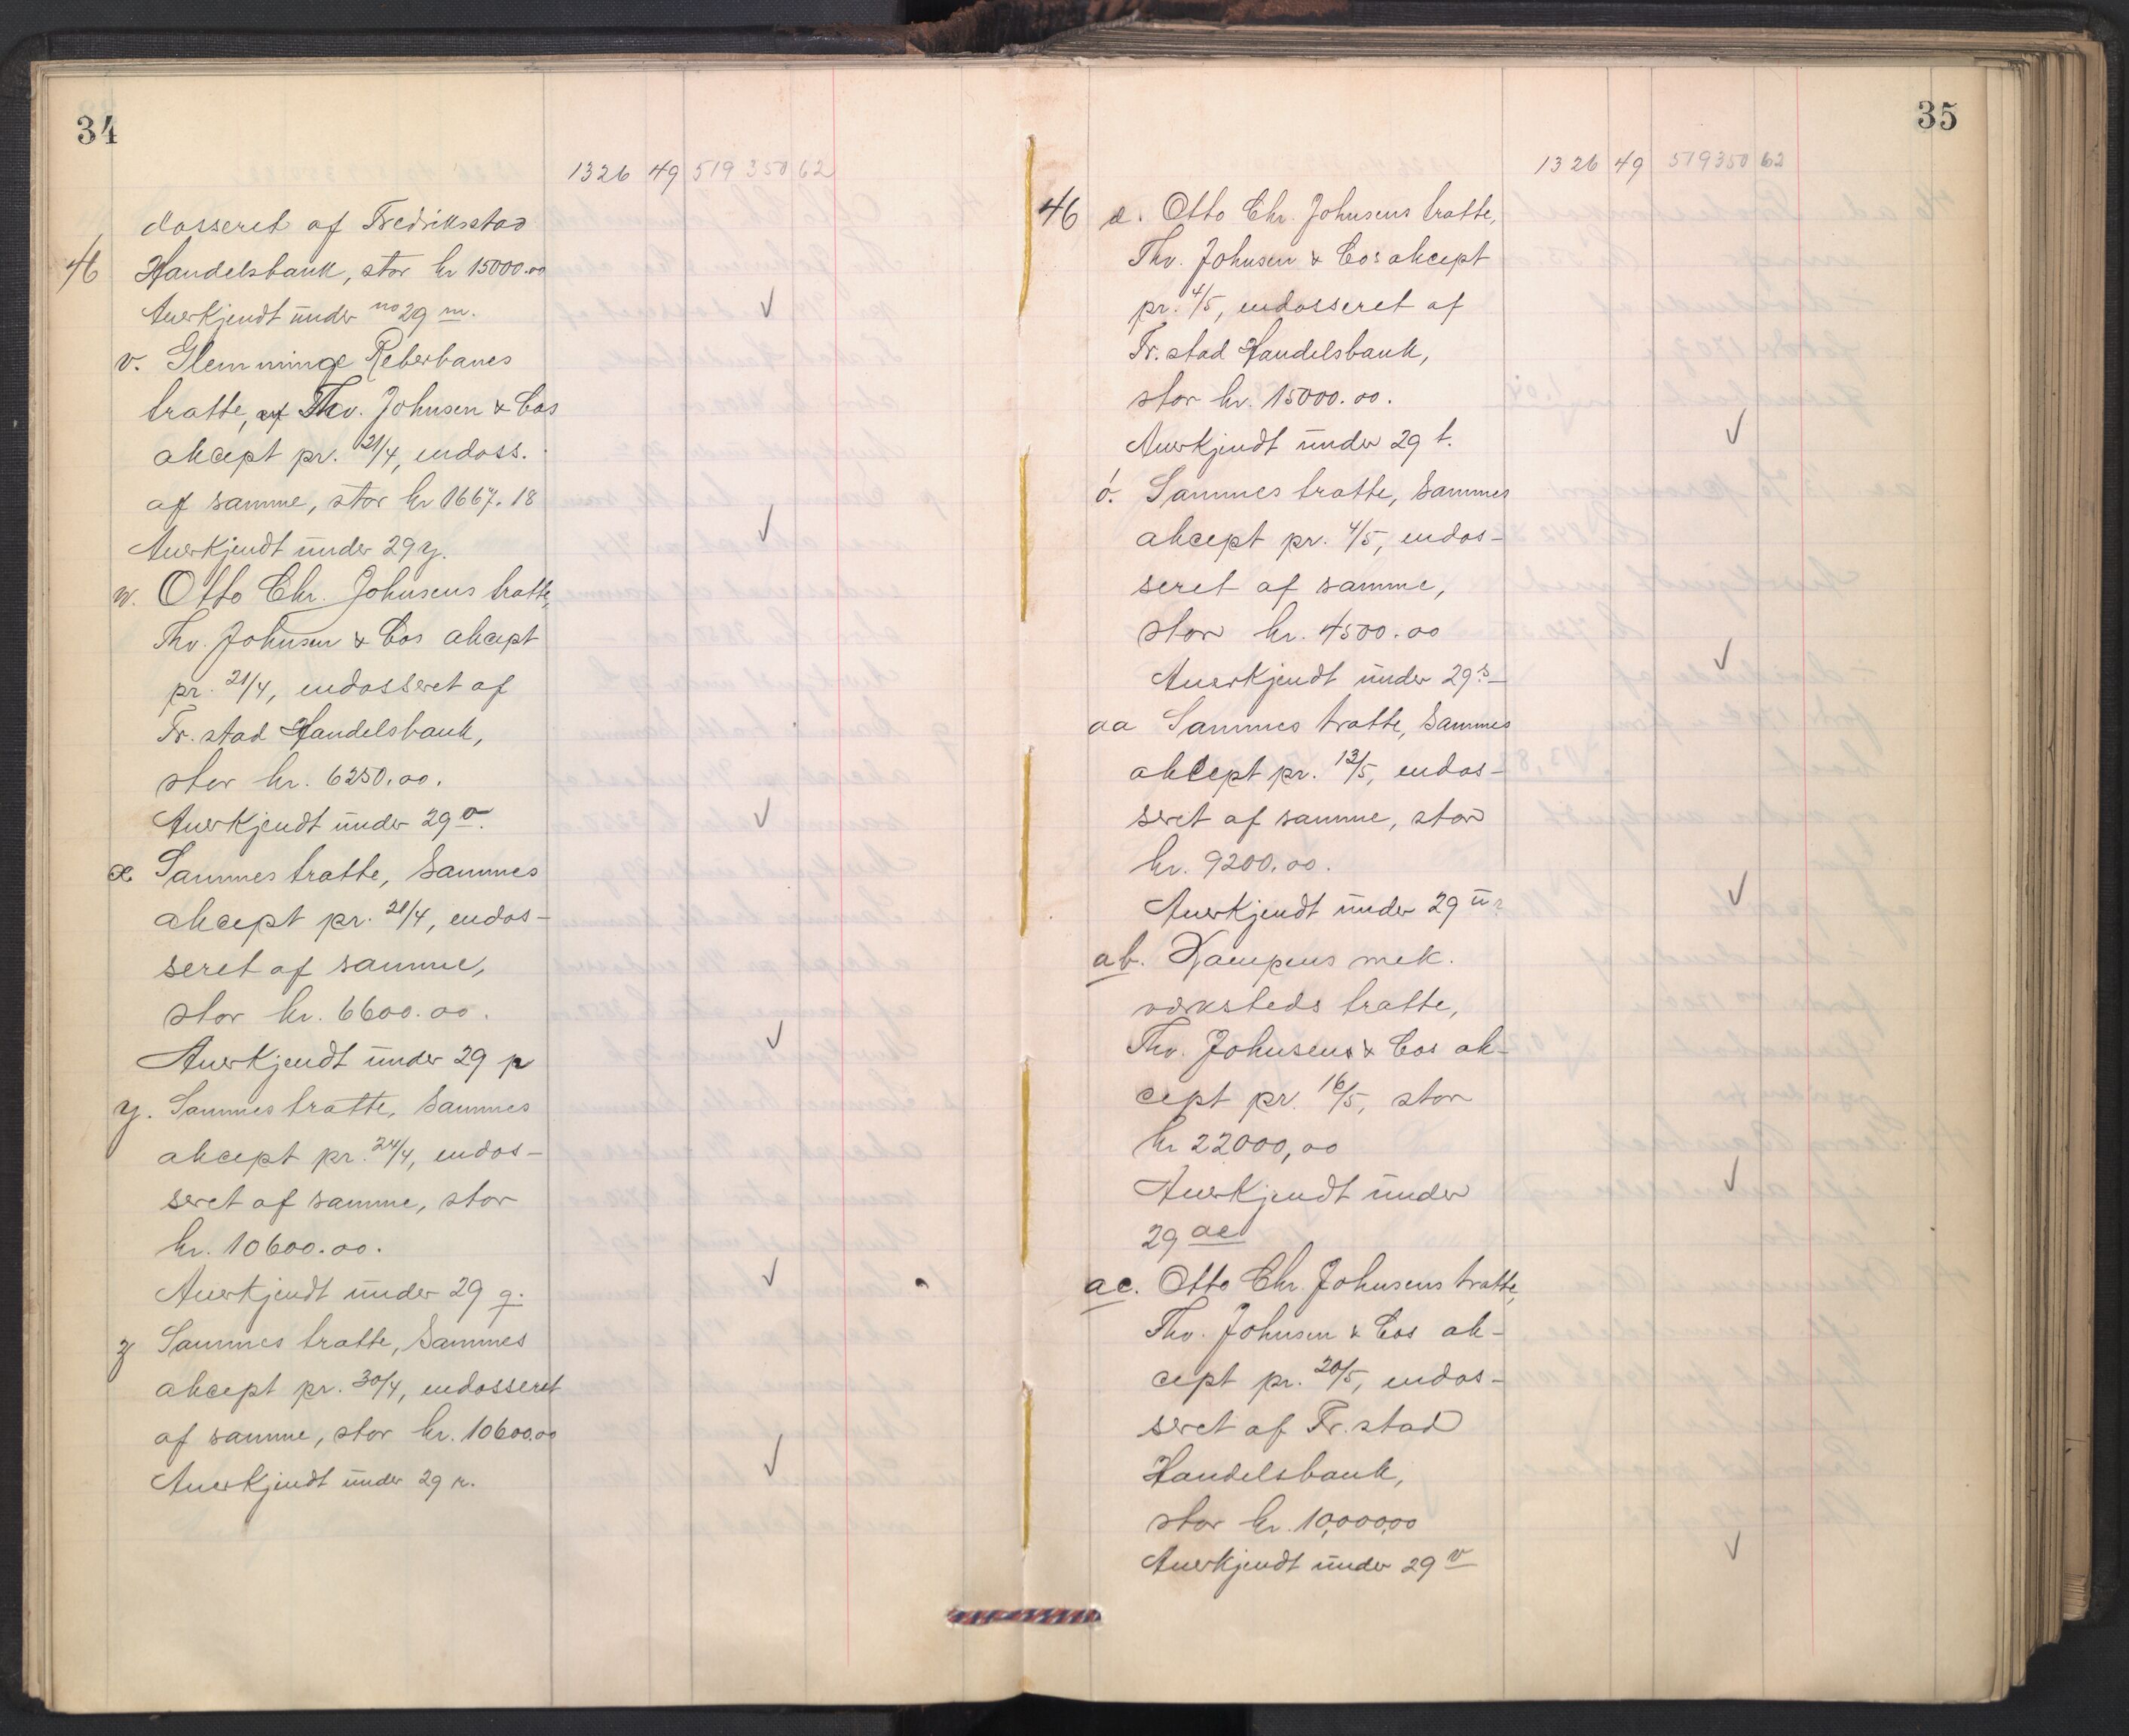 34
1326 49 519 350 62
dosseret af Fredriksstad
46 Handelsbank, stor kr 15000.00
Anerkjendt under no 29 m.
v. Glemminge Reberbanes
tratte, af Thv. Johnsen & Cos
akcept pr. 21/4, endoss.
af samme, stor kr 1667.18
Anerkjendt under 29 y.
w. Otto Chr. Johnsens tratte,
Thv. Johnsen & Cos akcept
pr. 21/4, endosseret af
Fr.stad Handelsbank,
stor kr. 6250.00.
Anerkjendt under 29 o.
x Sammes tratte, sammes
akcept pr. 21/4, endos-
seret af samme,
stor kr. 6600.00.
Anerkjendt under 29 p
y. Sammes tratte, sammes
akcept pr. 24/4, endos-
seret af samme, stor
kr. 10600.00.
Anerkjendt under 29 q.
z Sammes tratte, sammes
akcept pr. 30/4, endosseret
af samme, stor kr. 10600.00
Anerkjendt under 29 r.
35
1326 49 519350 62
46 æ. Otto Chr. Johnsens tratte,
Thv. Johnsen & Cos akcept
pr. 4/5, endosseret af
Fr.stad Handelsbank,
stor kr. 15000.00.
Anerkjendt under 29 t.
ó. Sammes tratte, sammes
akcept pr. 4/5, endos-
seret af samme,
stor kr. 4500.00
Anerkjendt under 29 s
aa Sammes tratte, sammes
akcept pr. 13/5, endos-
seret af samme, stor
kr. 9200.00.
Anerkjendt under 29 u
ab. Kampens mek.
værksteds tratte,
Thv. Johnsens & Cos ak-
cept pr. 16/5, stor
kr 22000,00
Anerkjendt under
29 ae
ac. Otto Chr. Johnsens tratte,
Thv. Johnsen & Cos ak-
cept pr. 20/5, endos-
seret af Fr.stad
Handelsbank,
stor kr. 10,000,00
Anerkjendt under 29 v